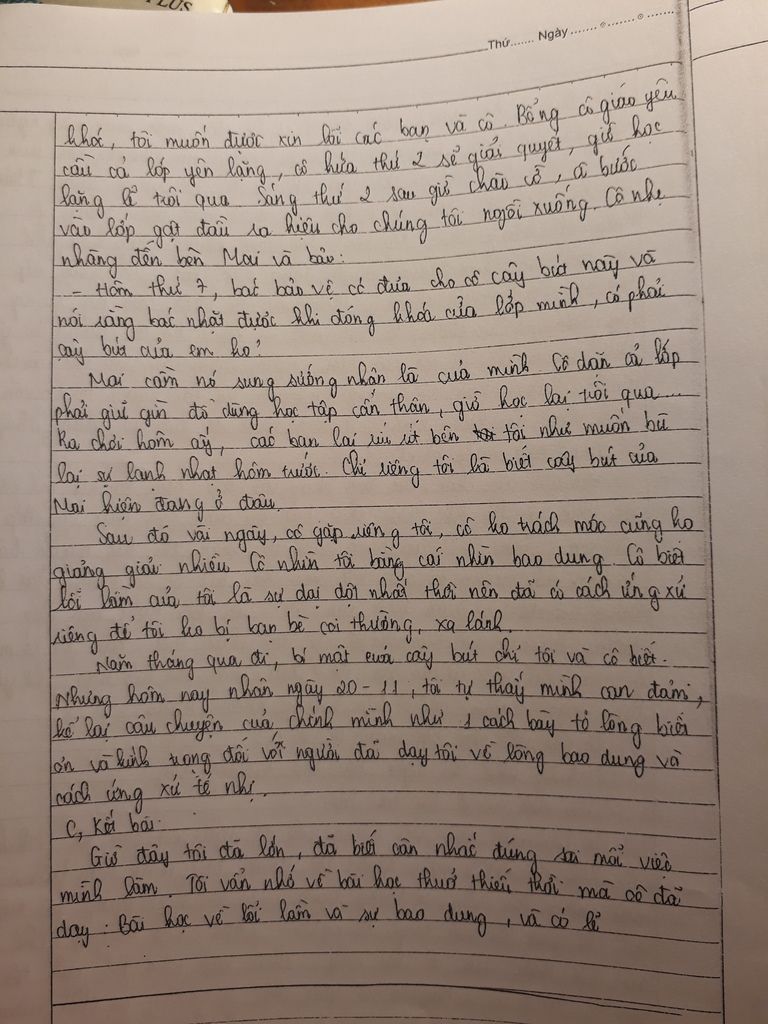 PLUS
Thứ....... Ngày ....... o ....... o .......
khóc, tôi muốn được xin lỗi các bạn và cô. Bỗng cô giáo yêu
cầu cả lớp yên lặng, cô hứa thứ 2 sẽ giải quyết, giờ học
lặng lẽ trôi qua. Sáng thứ 2 sau giờ chào cờ, cô bước
vào lớp gật đầu ra hiệu cho chúng tôi ngồi xuống. Cô nhẹ
nhàng đến bên Mai và bảo:
- Hôm thứ 7, bác bảo vệ có đưa cho cô cây bút này và
nói rằng bác nhặt được khi đóng khóa của lớp mình, có phải
cây bút của em ko?
Mai cầm nó sung sướng nhận là của mình. Cô dặn cả lớp
phải giữ gìn đồ dùng học tập cẩn thận, giờ học lại trôi qua...
Ra chơi hôm ấy, các bạn lại ríu rít bên tôi như muốn bù
lại sự lạnh nhạt hôm trước. Chỉ riêng tôi là biết cây bút của
Mai hiện đang ở đâu.
Sau đó vài ngày, cô gặp riêng tôi, cô ko trách móc cũng ko
giảng giải nhiều. Cô nhìn tôi bằng cái nhìn bao dung. Cô biết
lỗi lầm của tôi là sự dại dột nhất thời nên đã có cách ứng xử
riêng để tôi ko bị bạn bè coi thường, xa lánh.
Năm tháng qua đi, bí mật cuả cây bút chỉ tôi và cô biết.
Nhưng hôm nay nhân ngày 20-11, tôi tự thấy mình can đảm,
kể lại câu chuyện của chính mình như 1 cách bày tỏ lòng biết
ơn và kính trọng đối với người đã dạy tôi về lòng bao dung và
cách ứng xử tế nhị.
C, Kết bài:
Giờ đây tôi đã lớn, đã biết cân nhắc đúng sai mỗi việc
mình làm. Tôi vẫn nhớ về bài học thuở thiếu thời mà cô đã
dạy. Bài học về lỗi lầm và sự bao dung, và có lẽ